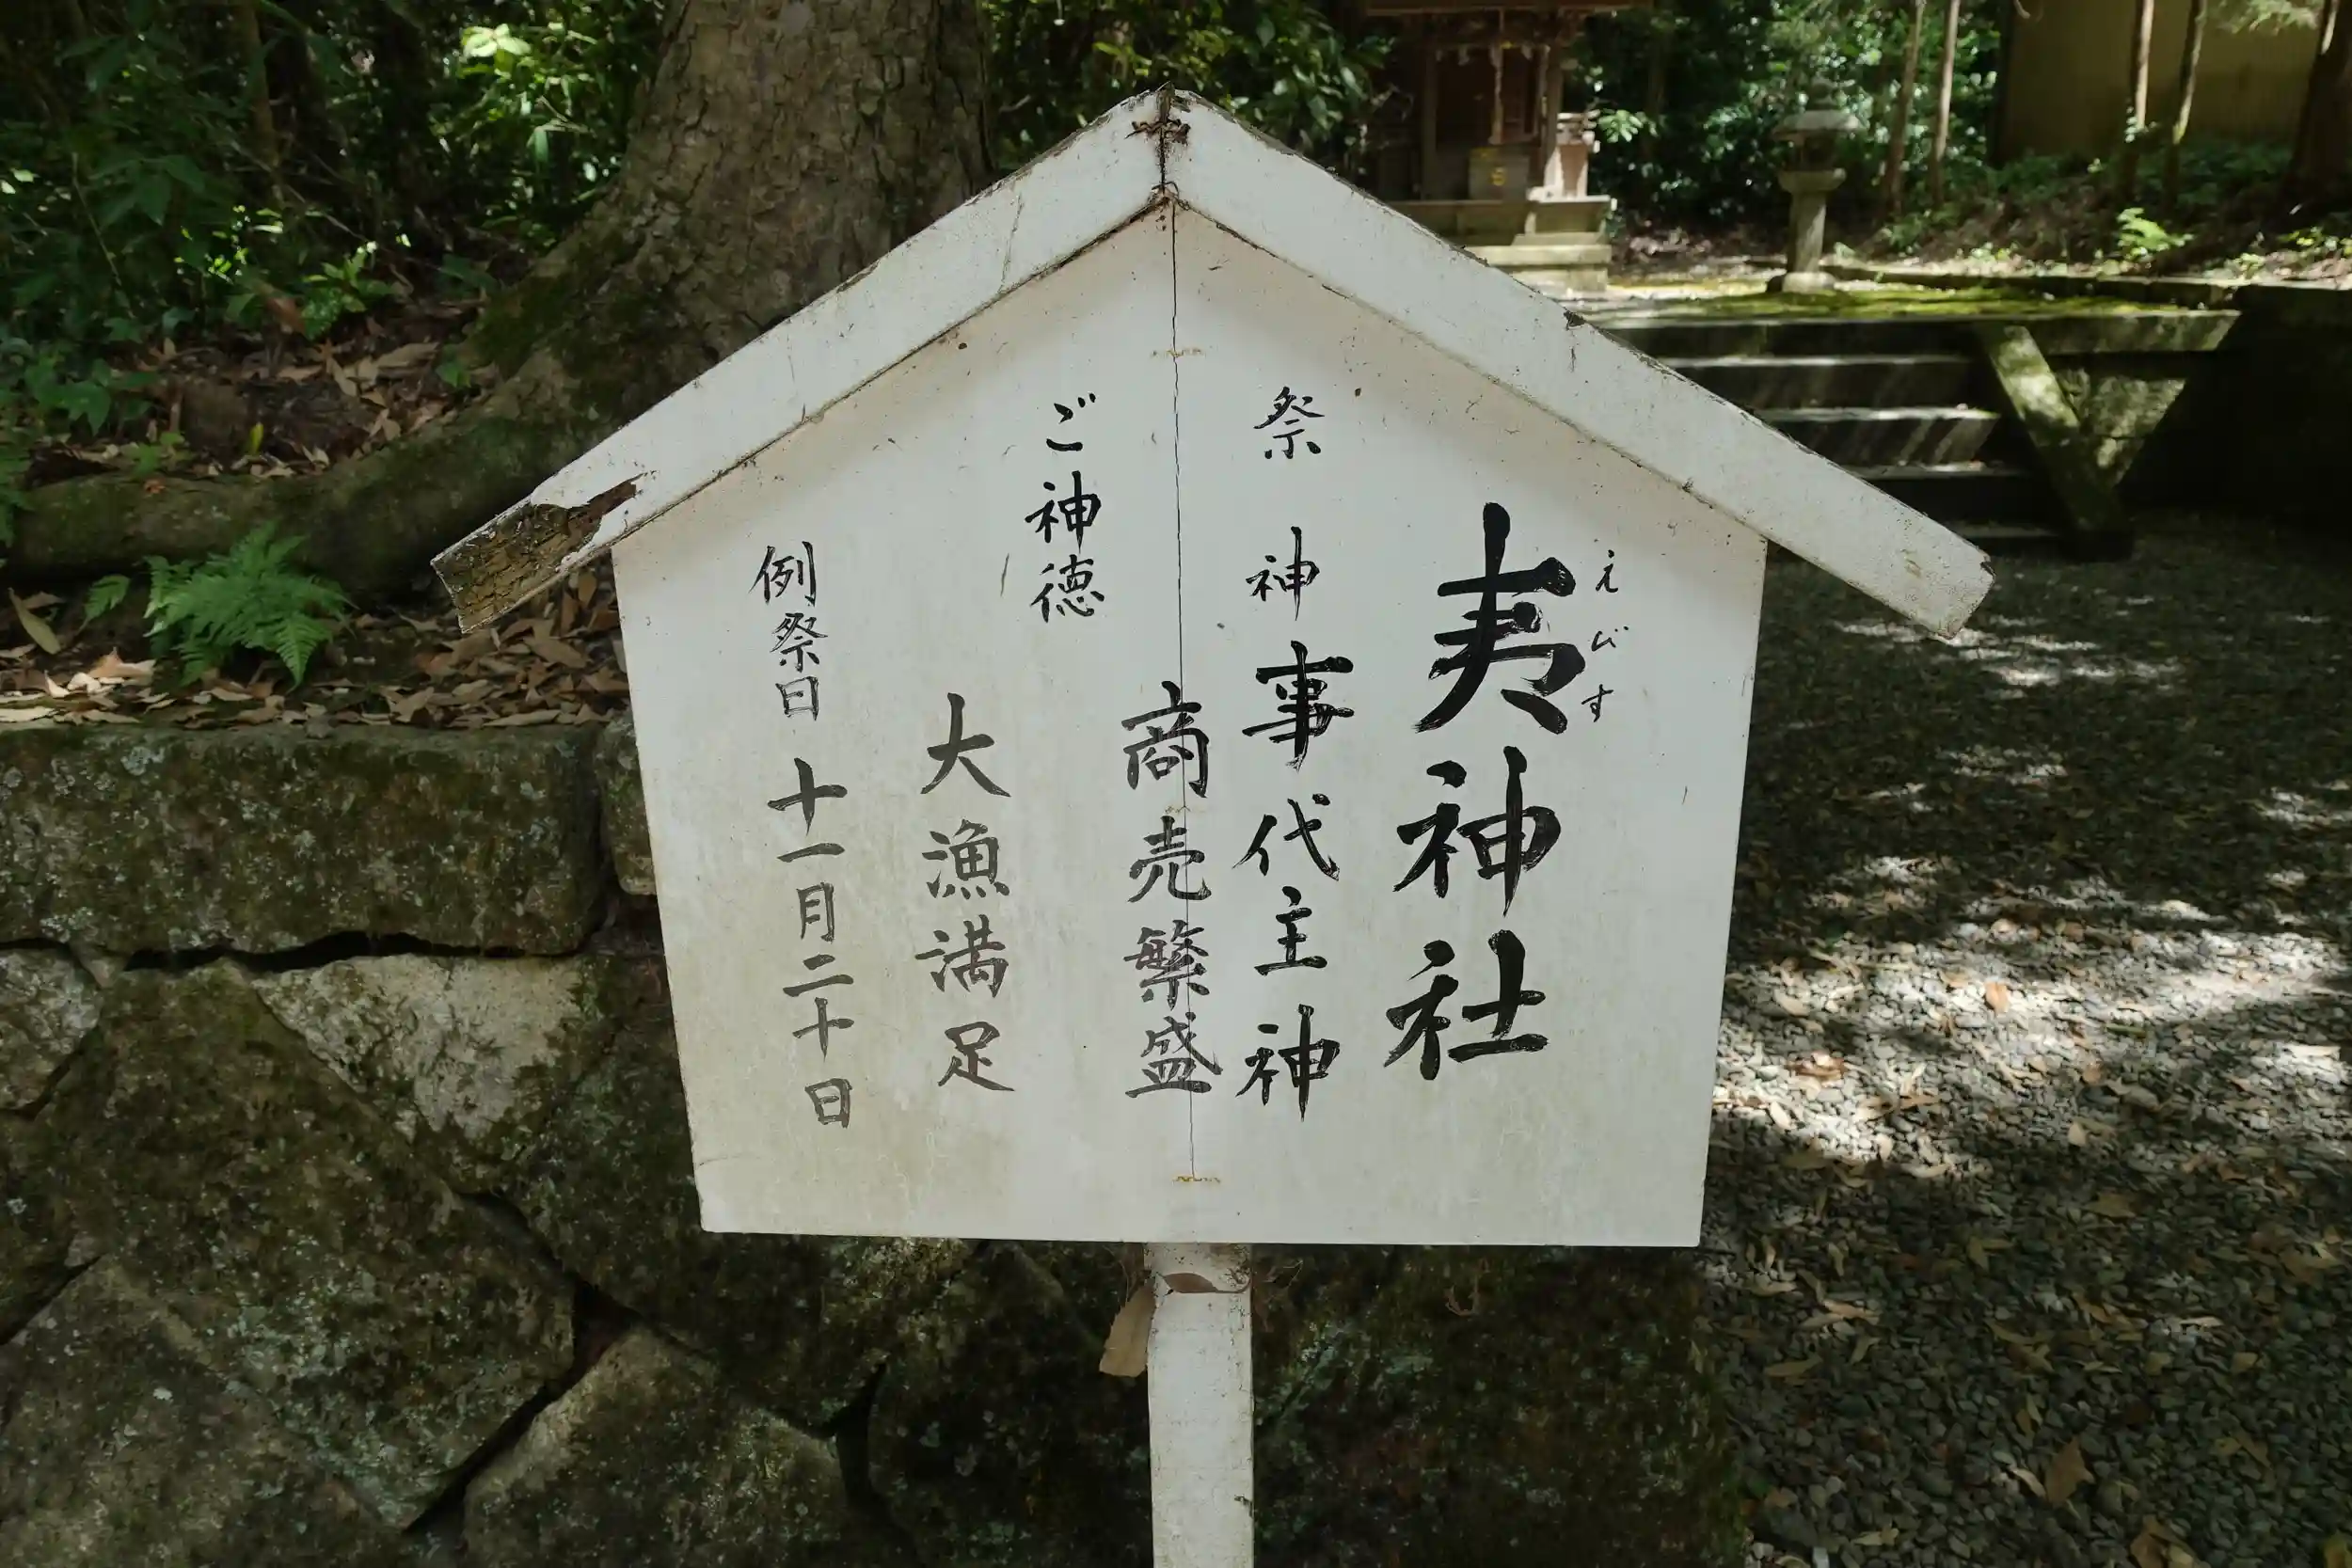 夷神社
えびす
祭神 事代主神
ご神徳
商売繁盛
大漁満足
例祭日 十一月二十日